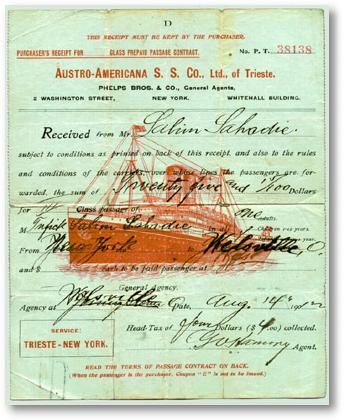 D
THIS RECEIPT MUST BE KEPT BY THE PURCHASER.
PURCHASER'S RECEIPT FOR CLASS PREPAID PASSAGE CONTRACT. No. P. T. 38138
AUSTRO-AMERICANA S. S. Co., Ltd., of Trieste.
PHELPS BROS. & CO., General Agents,
2 WASHINGTON STREET, NEW YORK. WHITEHALL BUILDING.
Received from Mr. Salim Sahadie.
subject to conditions as printed on back of this receipt, and also to the rules
and conditions of the carriers, over whose lines the passengers are for-
warded, the sum of Seventy five and /100 Dollars
for Class passage of one Adults,
M Salim Sahadie in all Children
From New York to
and $ cash to be paid passenger at
General
Agency at Date, Aug. 190
SERVICE:
TRIESTE - NEW YORK.
Head-Tax of four Dollars ($ 4.00) collected.
Agent.
READ THE TERMS OF PASSAGE CONTRACT ON BACK.
(When the passenger is the purchaser, Coupon "E" is not to be issued.)